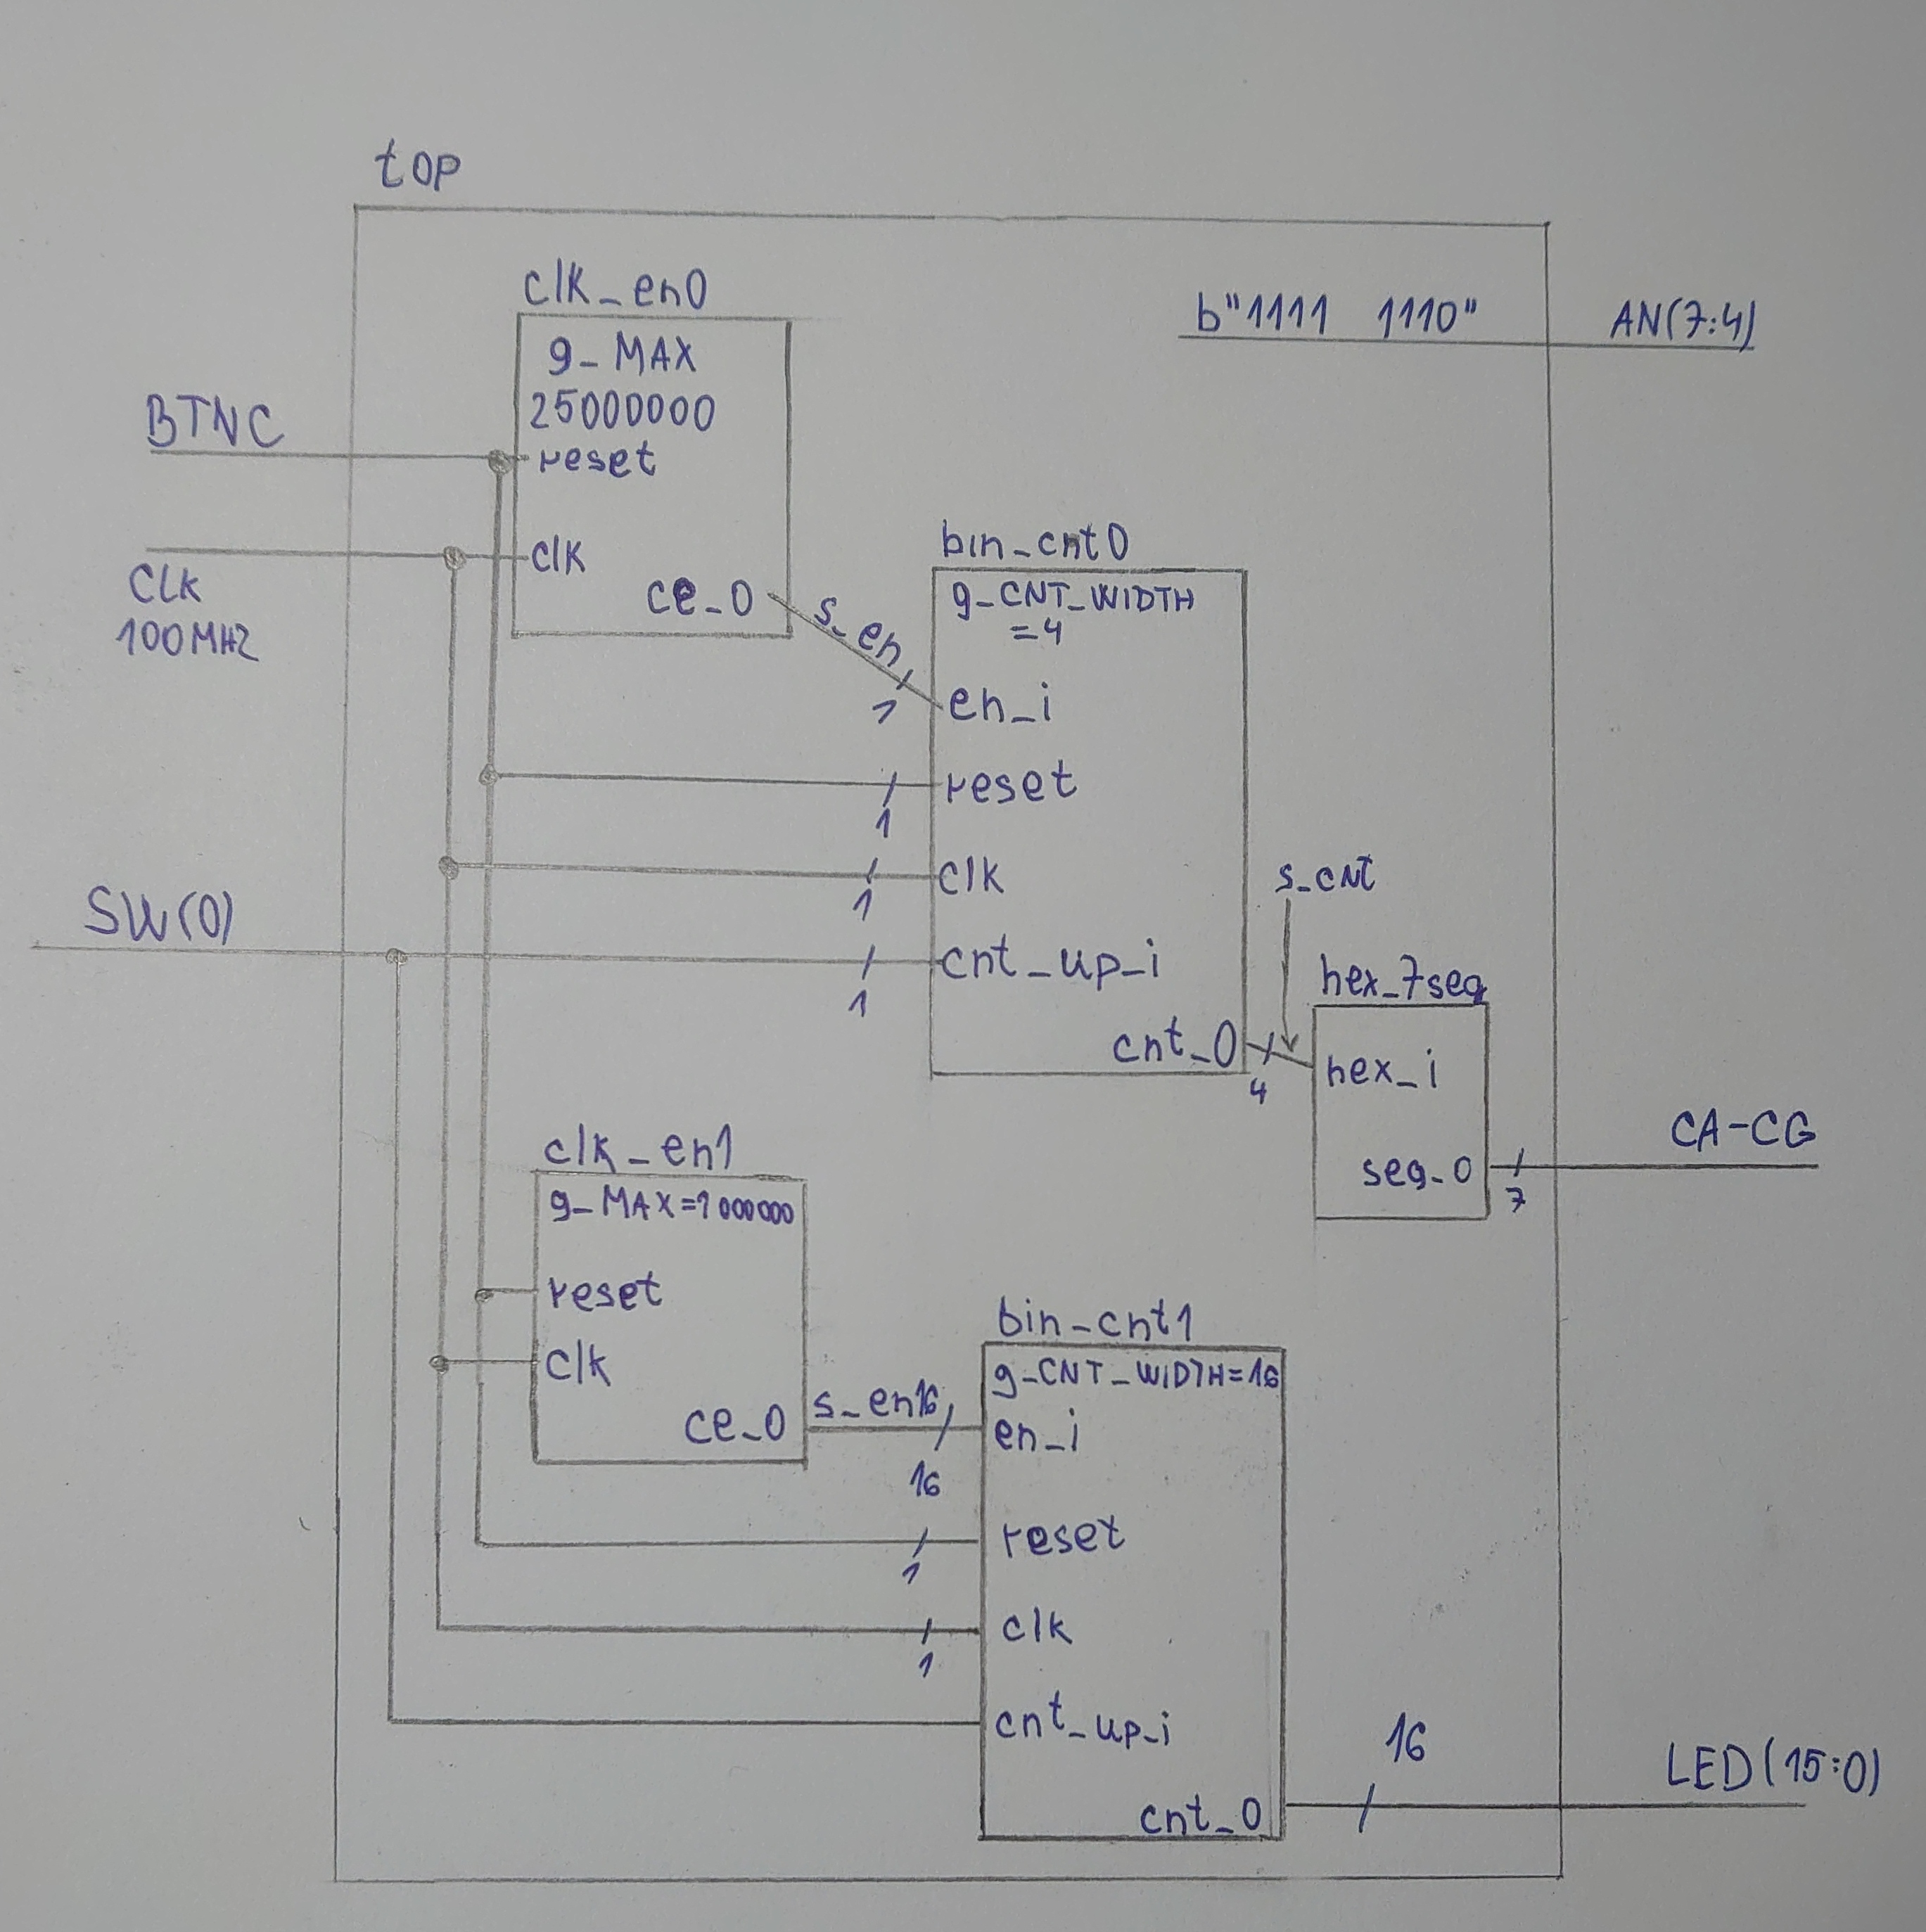 top
clk_en0
g_MAX
25000000
reset
clk
ce_0
b"1111 1110"
AN(7:4)
BTNC
CLK
100MHZ
s_en
1
bin_cnt0
g_CNT_WIDTH
=4
en_i
reset
1
clk
1
SW(0)
cnt_up_i
1
cnt_0
4
s_CNT
hex_7seg
hex_i
seg_0
7
CA-CG
clk_en1
g_MAX=1000000
reset
clk
ce_0
s_en16
16
bin_cnt1
g_CNT_WIDTH=16
en_i
reset
1
clk
1
cnt_up_i
cnt_0
16
LED(15:0)